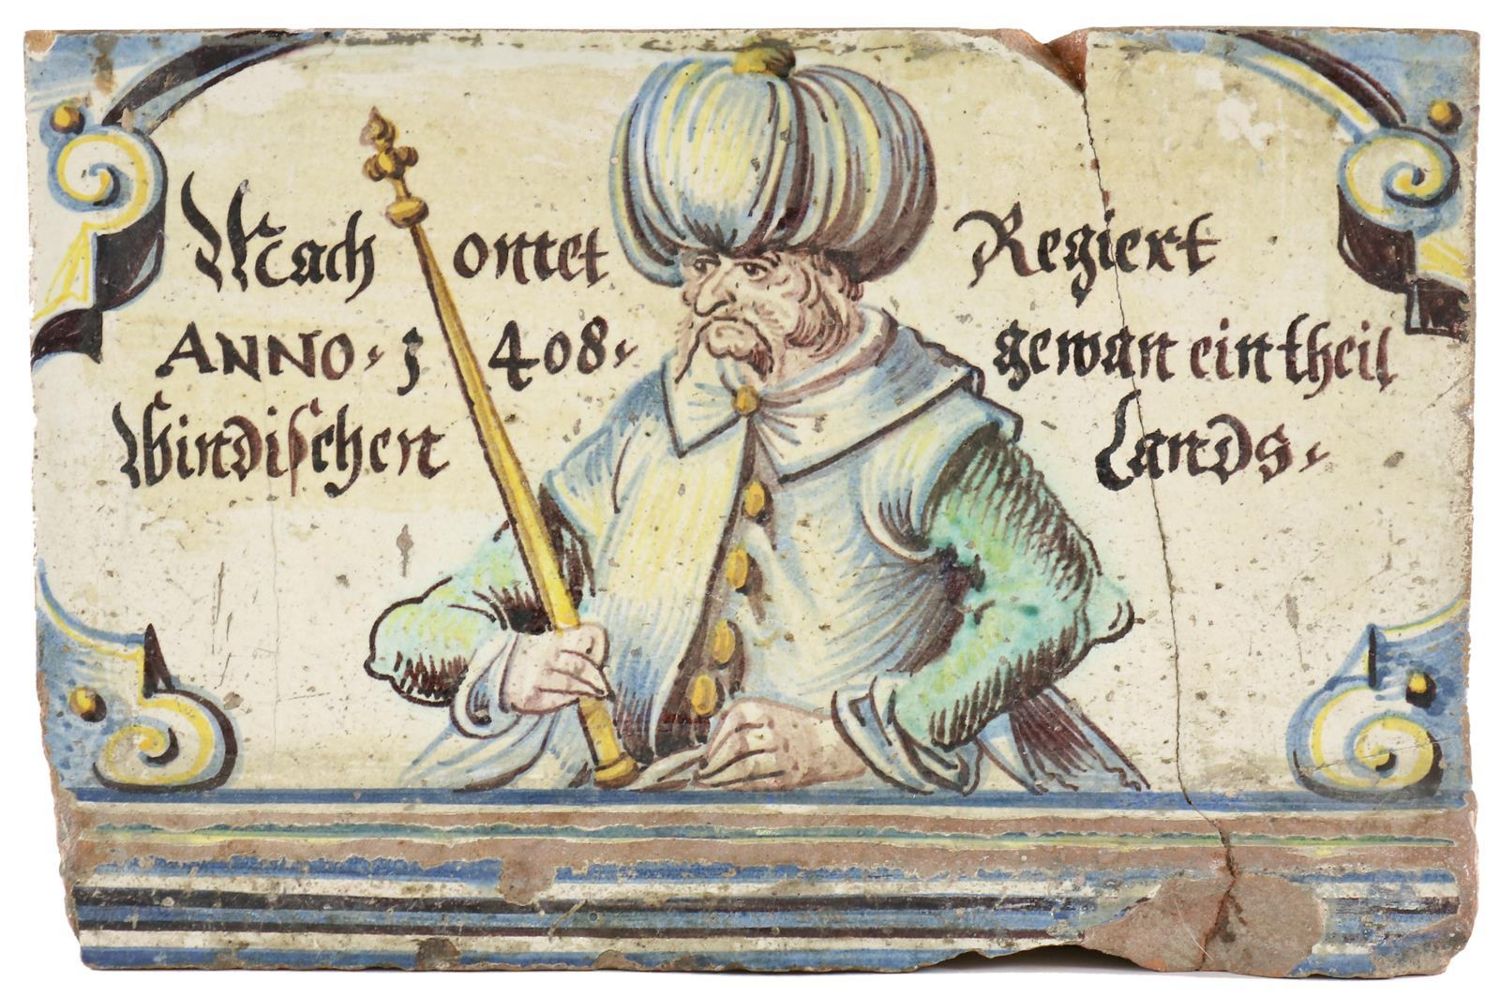 Machontet Regiert
ANNO · 1408 · gewan ein theil
Windischen Lands ·